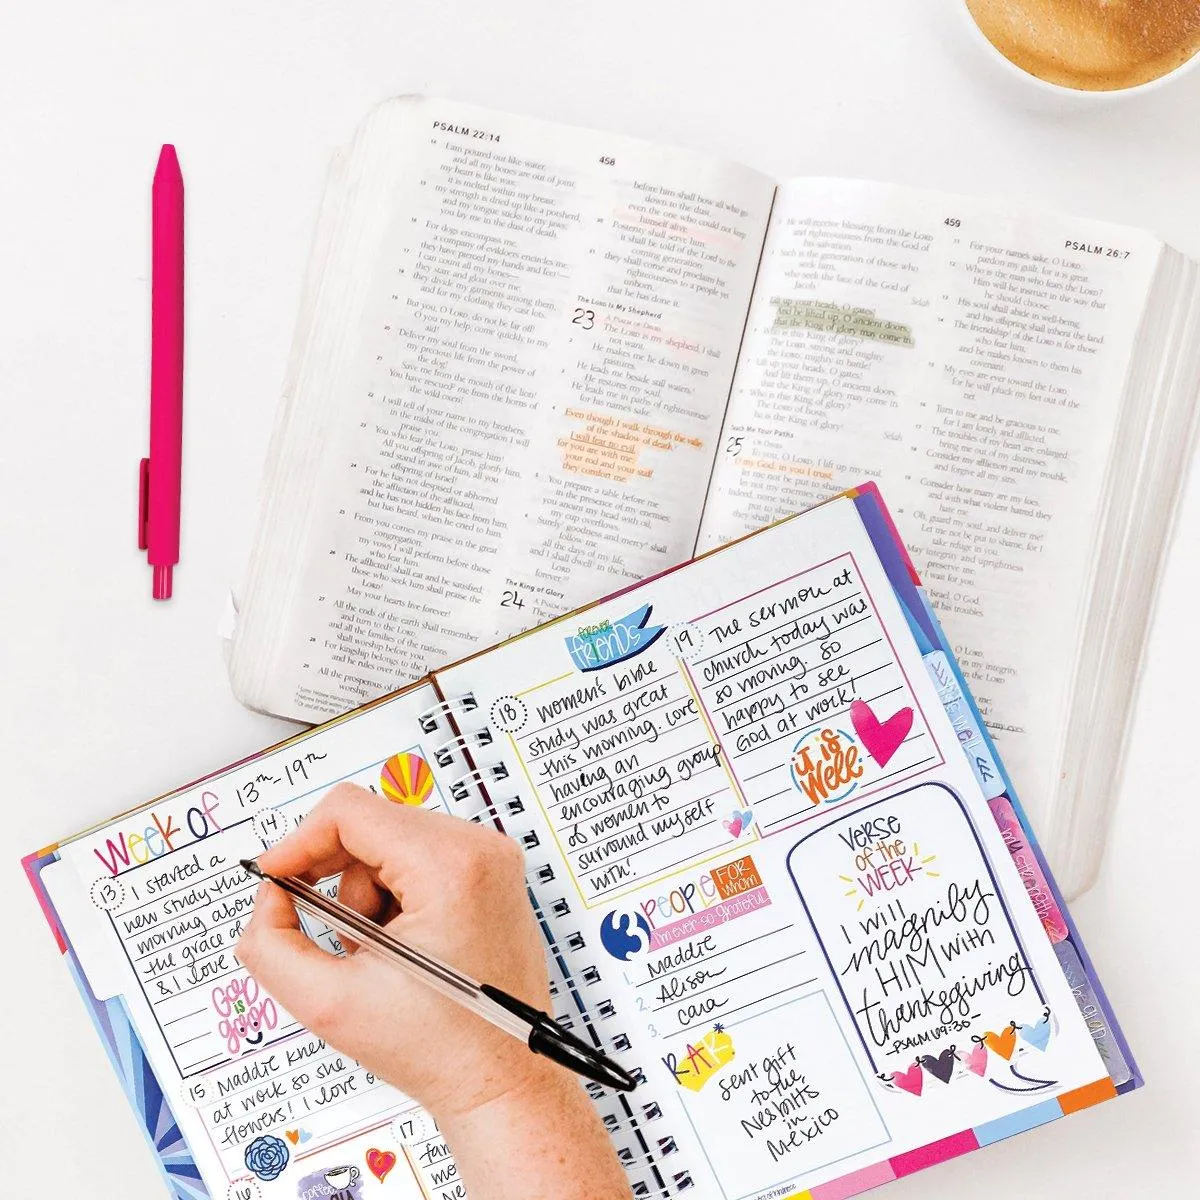 PSALM 22:14
458
14 I am poured out like water,
and all my bones are out of joint;
my heart is like wax;
it is melted within my breast;
15 my strength is dried up like a potsherd,
and my tongue sticks to my jaws;
you lay me in the dust of death.
16 For dogs encompass me;
a company of evildoers encircles me;
they have pierced my hands and feet
17 I can count all my bones—
they stare and gloat over me;
18 they divide my garments among them,
and for my clothing they cast lots.
19 But you, O LORD, do not be far off!
O you my help, come quickly to my
aid!
20 Deliver my soul from the sword,
my precious life from the power of
the dog!
21 Save me from the mouth of the lion!
You have rescued me from the horns of
the wild oxen!
22 I will tell of your name to my brothers;
in the midst of the congregation I will
praise you:
23 You who fear the LORD, praise him!
All you offspring of Jacob, glorify him,
and stand in awe of him, all you
offspring of Israel!
24 For he has not despised or abhorred
the affliction of the afflicted,
and he has not hidden his face from him,
but has heard, when he cried to him.
25 From you comes my praise in the great
congregation;
my vows I will perform before those
who fear him.
26 The afflicted shall eat and be satisfied;
those who seek him shall praise the
LORD!
May your hearts live forever!
27 All the ends of the earth shall remember
and turn to the LORD,
and all the families of the nations
shall worship before you.
28 For kingship belongs to the
and he rules over the
29 All the prosperous of
worship;
before him shall bow all who go
down to the dust,
even the one who could not keep
himself alive.
30 Posterity shall serve him;
it shall be told of the Lord to the
coming generation;
31 they shall come and proclaim his
righteousness to a people yet
unborn,
that he has done it.
The LORD Is My Shepherd
23 A PSALM OF DAVID.
The LORD is my shepherd; I shall
not want.
2 He makes me lie down in green
pastures.
He leads me beside still waters.
3 He restores my soul.
He leads me in paths of righteousness
for his name's sake.
4 Even though I walk through the valley
of the shadow of death,
I will fear no evil,
for you are with me;
your rod and your staff,
they comfort me.
5 You prepare a table before me
in the presence of my enemies;
you anoint my head with oil;
my cup overflows.
6 Surely goodness and mercy shall
follow me
all the days of my life,
and I shall dwell in the house
LORD
forever.
The King of Glory
24 A PSALM OF
459
PSALM 26:7
5 He will receive blessing from the LORD
and righteousness from the God of
his salvation.
6 Such is the generation of those who
seek him,
who seek the face of the God of
Jacob.
Selah
7 Lift up your heads, O gates!
And be lifted up, O ancient doors,
that the King of glory may come in.
8 Who is this King of glory?
The LORD, strong and mighty,
the LORD, mighty in battle!
9 Lift up your heads, O gates!
And lift them up, O ancient doors,
that the King of glory may come in.
10 Who is this King of glory?
The LORD of hosts,
he is the King of glory!
Selah
Teach Me Your Paths
25 OF DAVID.
To you, O LORD, I lift up my soul.
2 O my God, in you I trust;
let me not be put to shame;
let not my enemies
3 Indeed, none who
put to
they shall
11 For your name's sake, O LORD,
pardon my guilt, for it is great.
12 Who is the man who fears the LORD?
Him will he instruct in the way that
he should choose.
13 His soul shall abide in well-being,
and his offspring shall inherit the land.
14 The friendship of the LORD is for those
who fear him,
and he makes known to them his
covenant.
15 My eyes are ever toward the LORD,
for he will pluck my feet out of the
net.
16 Turn to me and be gracious to me,
for I am lonely and afflicted.
17 The troubles of my heart are enlarged;
bring me out of my distresses.
18 Consider my affliction and my trouble,
and forgive all my sins.
19 Consider how many are my foes,
and with what violent hatred they
hate me.
20 Oh, guard my soul, and deliver me!
Let me not be put to shame, for I
take refuge in you.
21 May integrity and uprightness
preserve me,
for I wait for you.
Israel, O God,
his troubles.
O LORD
in my integrity
my eyes
Week of 13th-19th
13 I started a
new study this
morning about
the grace of
& I love
GOD
is
good
14
15 Maddie knew
at work so she
flowers! I love
16
coffee
17
18 women's bible
study was great
this morning. Love
having an
encouraging group
of women to
surround myself
with!
FOREVER
friends
19 The sermon at
church today was
so moving. So
happy to see
God at work!
it is
Well
3 PEOPLE FOR
whom
I'm ever-so-grateful
1. Maddie
2. Alison
3. Cara
R.A.K
Sent gift
to the
Nesbitt's
in
Mexico
VERSE
of the
WEEK
I will
magnify
HIM with
thanksgiving
-PSALM 69:30-
is well
my strength
be glad